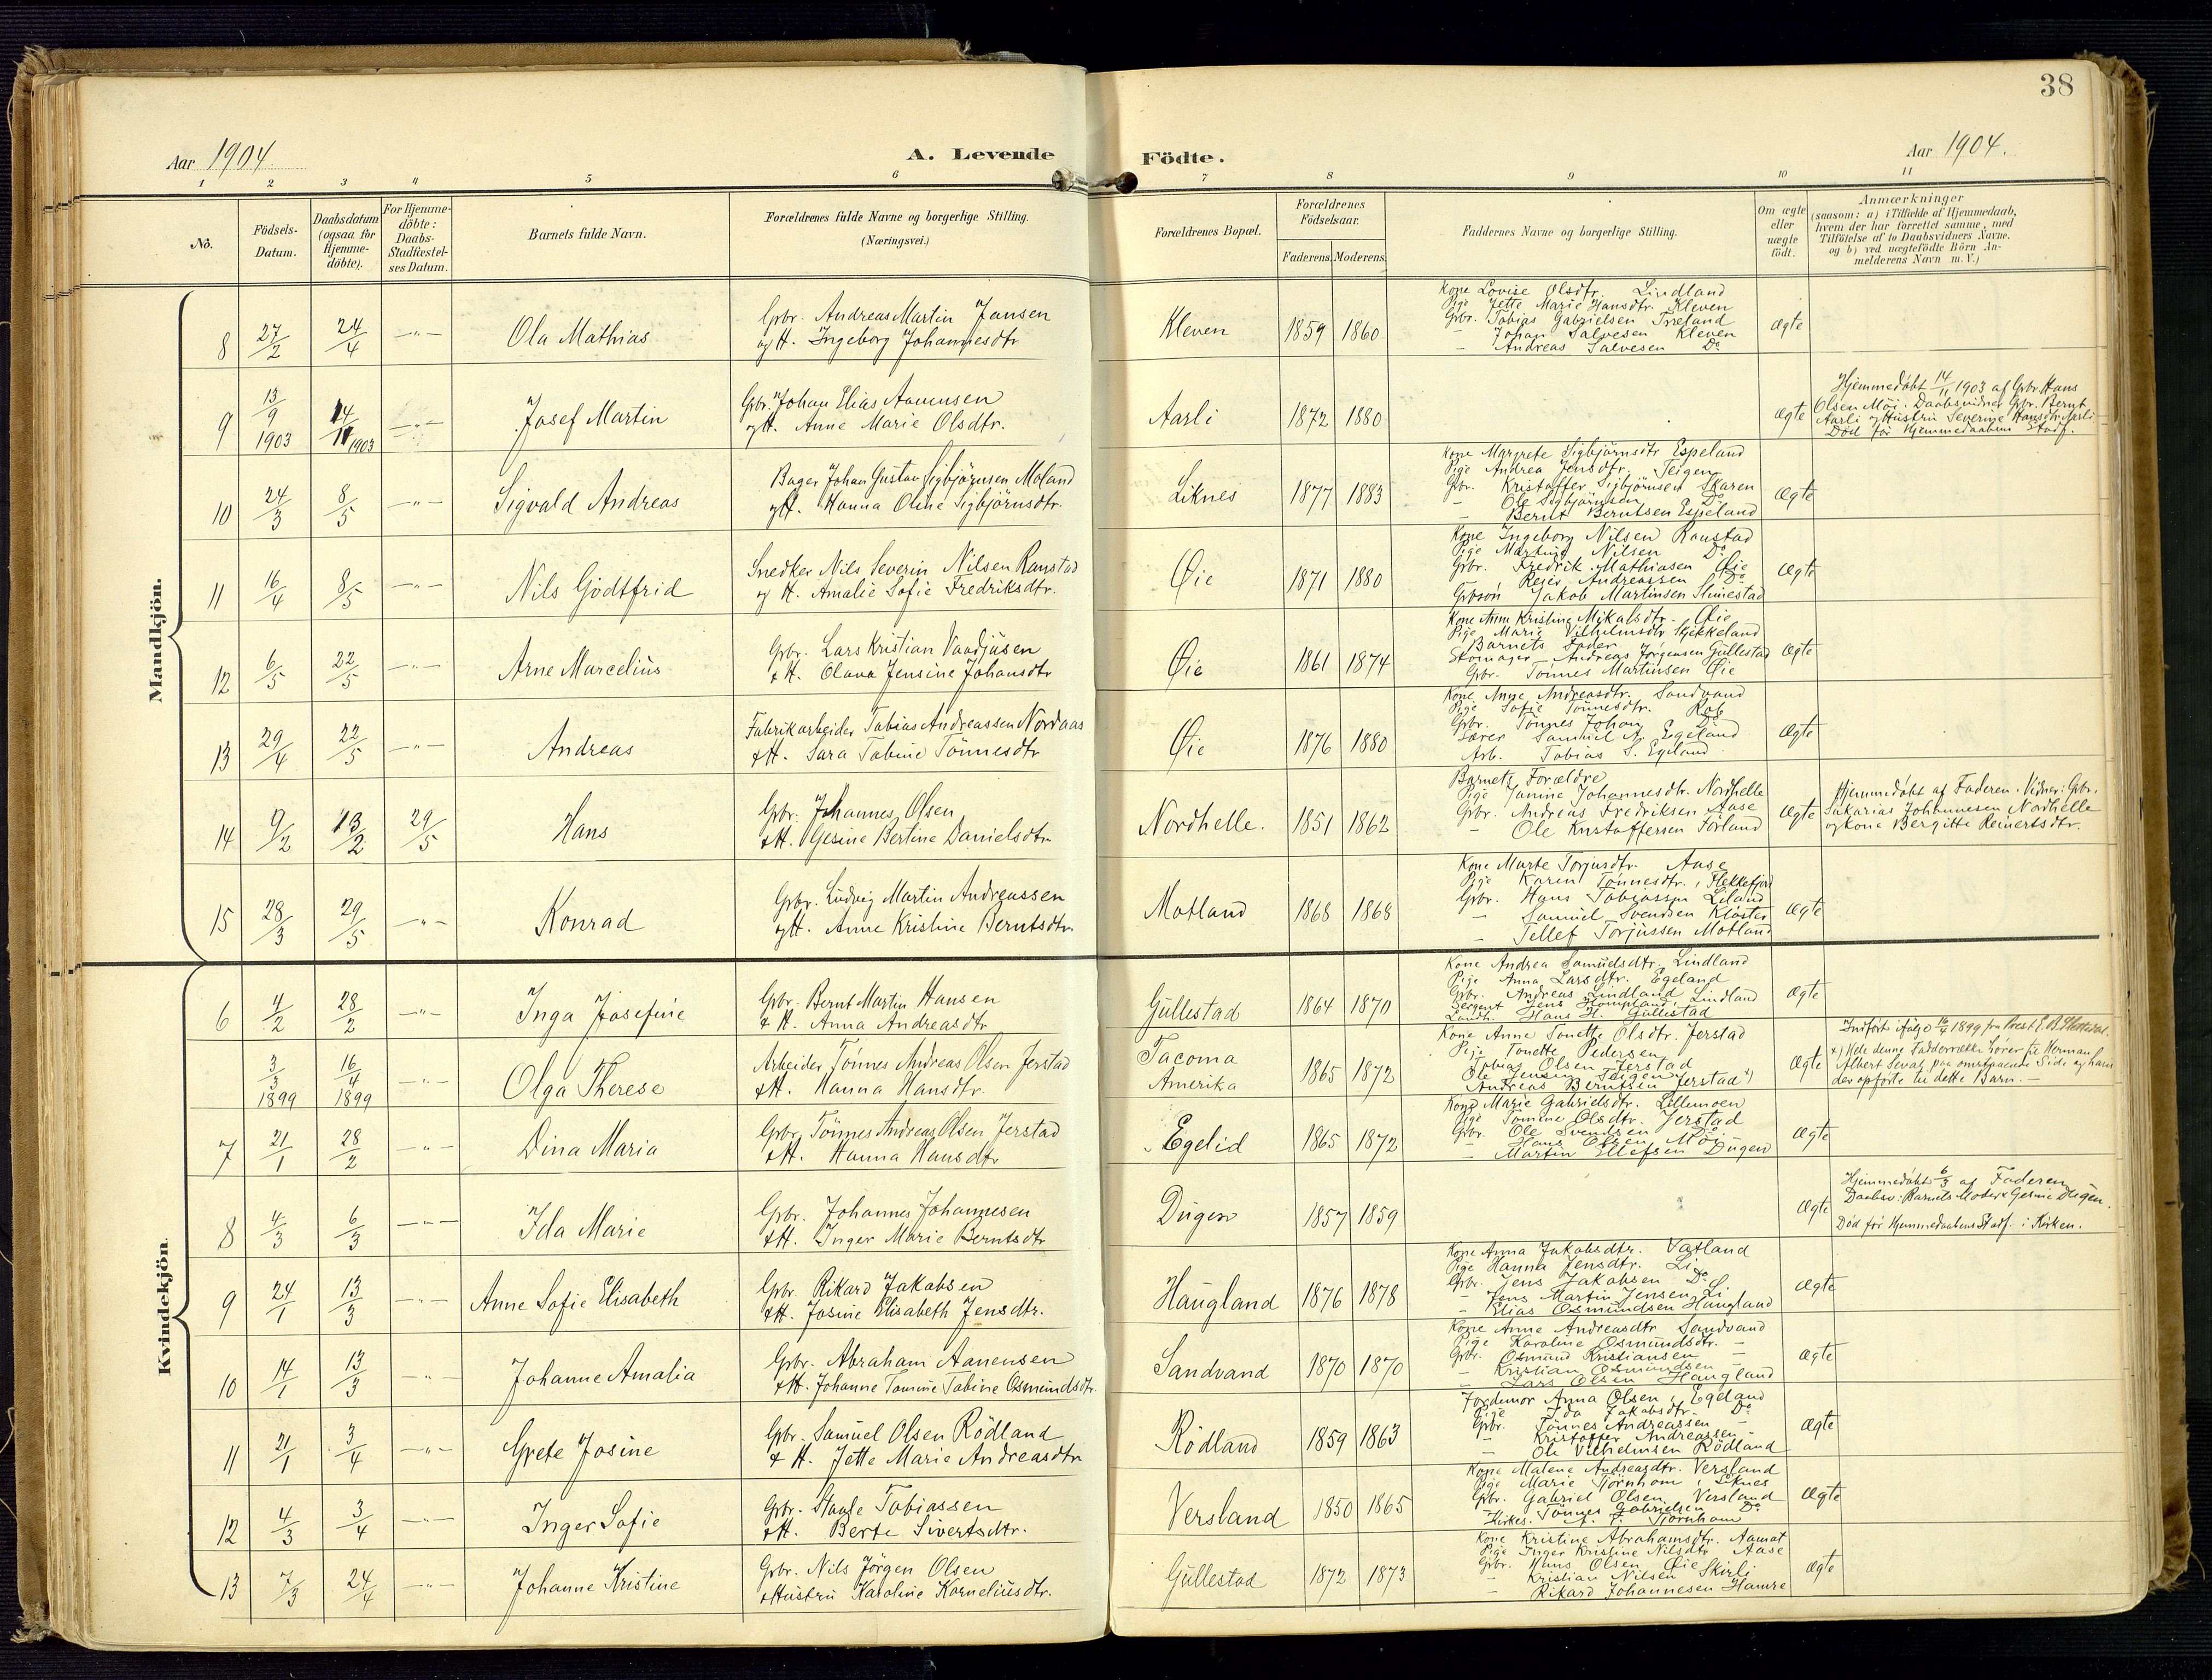 38
Aar 1904
A. Levende
Födte.
Aar 1904.
1 2 3 4 5 6 7 8 9 10 11
No.
Födsels-
Datum.
Daabsdatum
(ogsaa for
Hjemme-
döbte).
For Hjemme-
döbte:
Daabs-
Stadfæstel-
ses Datum.
Barnets fulde Navn.
Forældrenes fulde Navne og borgerlige Stilling.
(Næringsvei.)
Forældrenes Bopæl.
Forældrenes
Födselsaar.
Faderens. Moderens.
Faddernes Navne og borgerlige Stilling.
Om ægte
eller
uægte
födt.
Anmærkninger
(saasom: a) i Tilfælde af Hjemmedaab,
hvem der har forrettet samme, med
Tilföielse af to Daabsvidners Navne.
og b) ved uægtefödte Börn An-
melderens Navn m. V.)
Mandkjön.
8 27/2 24/4 —"— Ola Mathias
Gbr. Andreas Martin Jansen
og H. Ingeborg Johannesdtr
Kleven 1859 1860
Kone Lovise Olsdtr. Lindland
Pige Jette Marie Hansdtr. Kleven
Gbr. Tobias Gabrielsen Træland
— Johan Salvesen Kleven
— Andreas Salvesen Do
Ægte
9 13/9 1903 14/11 1903 —"— Josef Martin
Gbr. Johan Elias Aanensen
og H. Anne Marie Olsdtr.
Aarli 1872 1880
ægte
Hjemmedöbt 14/11 1903 af Gbr. Hans
Olsen Möi. Daabsvidner Gbr. Bernt
Aarli og Hustru Severine Hansdtr. Aarli
Död för Hjemmedaabens Stadf.
10 24/3 8/5 —"— Sigvald Andreas
Bager Johan Gustav Sigbjörnsen Moland
og H. Hanna Oline Sigbjörnsdtr.
Liknes 1877 1883
Kone Margrete Sigbjörnsdtr Espeland
Pige Andrea Jensdtr. Teigen
Gbr. Kristoffer Sigbjörnsen Skaren
— Ole Sigbjörnsen Do
— Bernt Berntsen Espeland
Ægte
11 16/4 8/5 —"— Nils Godtfrid
Snedker Nils Severin Nilsen Raustad
og H. Amalie Sofie Fredriksdtr.
Øie 1871 1880
Kone Ingeborg Nilsen Raustad
Pige Martine Nilsen Do
Gbr. Fredrik Mathiasen Øie
— Reier Andreassen Do
Gbrsön Jakob Martinsen Slimestad
Ægte
12 6/5 22/5 —"— Arne Marcelius
Gbr. Lars Kristian Vaadjusen
& H. Olava Jensine Johansdtr
Øie 1861 1874
Kone Anne Kristine Mikalsdtr. Øie
Pige Marie Vilhelmsdtr.
Barnets Fader
Skomager Andreas Jörgensen Gullestad
Gbr. Tönnes Martinsen Øie
Ægte
13 29/4 22/5 —"— Andreas
Fabrikarbeider Tobias Andreassen Nordaas
& H. Sara Tobine Tönnesdtr
Øie 1876 1880
Kone Anne Andreasdtr. Sandvand
Pige Sofie Tönnesdtr. Rob
Gbr. Tönnes Johan Do
Lærer Samuel A. Egeland
Arb. Tobias S. Egeland
Ægte
14 9/2 13/2 29/5 Hans
Gbr. Johannes Olsen
& H. Gesine Bertine Danielsdtr
Nordhelle. 1851 1862
Barnets Forældre
Pige Janine Johannesdtr. Nordhelle
Gbr. Andreas Fredriksen Aase
— Ole Kristoffersen Förland
Ægte
Hjemmedöbt af Faderen. Vidner: Gbr.
Sakarias Johannesen Nordhelle
og kone Bergitte Reinertsdtr.
15 28/3 29/5 —"— Konrad
Gbr. Ludvig Martin Andreassen
og H. Anne Kristine Berntsdtr.
Motland 1868 1868
Kone Marte Torjusdtr. Aase
Pige Karen Tönnesdtr., Flekkefjord
Gbr. Hans Tobiassen Liland
— Samuel Svendsen Kloster
— Tellef Torjussen Motland
Ægte
Kvindekjön.
6 4/2 28/2 —"— Inga Josefine
Gbr. Bernt Martin Hansen
& H. Anna Andreasdtr
Gullestad 1864 1870
Kone Andrea Samuelsdtr. Lindland
Pige Anna Larsdtr. Egeland
Gbr. Andreas Lindland, Lindland
Sergent Jens Hompland,
Landh. Hans H. Gullestad
Ægte
3/3 1899 16/4 1899 —"— Olga Therese
Arbeider Tönnes Andreas Olsen Jerstad
& H. Hanna Hansdtr.
Tacoma
Amerika 1865 1872
Kone Anne Tonette Olsdtr. Jerstad
Pige Tonette Pedersen
Tobias Olsen Jerstad
Ole Jensen Teigen
Andreas Berntsen Jerstad x)
Ægte
Indfört ifölge 16/4 1899 fra Prest
x) Hele denne Fadderrække hörer til Herman
Albert Sevag paa omstaaende Side og ham
der opförte til dette Barn. —
7 21/1 28/2 —"— Dina Maria
Gbr. Tönnes Andreas Olsen Jerstad
& H. Hanna Hansdtr
Egelid 1865 1872
Kone Marie Gabrielsdtr. Lillemoen
Pige Tomine Olsdtr. Jerstad
Gbr. Ole Svendsen Do
— Hans Olsen Möi
— Martin Ellefsen Dugen
Ægte
8 4/3 6/3 —"— Ida Marie
Gbr. Johannes Johannesen
& H. Inger Marie Berntsdtr
Dugen 1857 1859
Ægte
Hjemmedöbt 6/3 af Faderen
Daabsv: Barnets Moder & Gesine Dugen.
Död för Hjemmedaabens Stadf. i Kirken.
9 24/1 13/3 —"— Anne Sofie Elisabeth
Gbr. Rikard Jakobsen
& H. Josine Elisabeth Jensdtr.
Haugland 1876 1878
Kone Anna Jakobsdtr. Vatland
Pige Hanna Jensdtr. Li
Gbr. Jens Jakobsen Do
— Jens Martin Jensen Li
— Elias Osmundsen Haugland
Ægte
10 14/1 13/3 —"— Johanne Amalia
Gbr. Abraham Aanensen
& H. Johanne Tomine Tobine Osmundsdtr.
Sandvand 1870 1870
Kone Anne Andreasdtr Sandvand
Pige Karoline Osmundsdtr. —
Gbr. Osmund Kristiansen —
— Kristian Osmundsen —
— Lars Olsen Haugland
Ægte
11 21/1 3/4 —"— Grete Josine
Gbr. Samuel Olsen Rödland
& H. Jette Marie Andreasdtr
Rödland 1859 1863
Jordemor Anna Olsen, Egeland
Pige Ida Jakobsdtr. Do
Gbr. Tönnes Andreassen —
— Kristoffer Andreassen —
— Ole Vilhelmsen Rödland
Ægte
12 4/3 3/4 —"— Inger Sofie
Gbr. Staale Tobiassen
& H. Berte Sivertsdtr.
Versland 1850 1865
Kone Malene Andreasdtr. Versland
Pige Marie Tjörnhom, Liknes
Gbr. Gabriel Olsen Versland
— Tönnes Gabrielsen Do
Kirkes. A. T. Tjörnhom
Ægte
13 7/3 24/4 —"— Johanne Kristine
Gbr. Nils Jörgen Olsen
& Hustru Karoline Korneliusdtr.
Gullestad 1872 1873
Kone Kristine Abrahamsdtr. Aamot
Pige Inger Kristine Nilsdtr Aase
Gbr. Hans Olsen Øie
— Kristian Nilsen Skirli
— Rikard Johannesen Hamre
Ægte